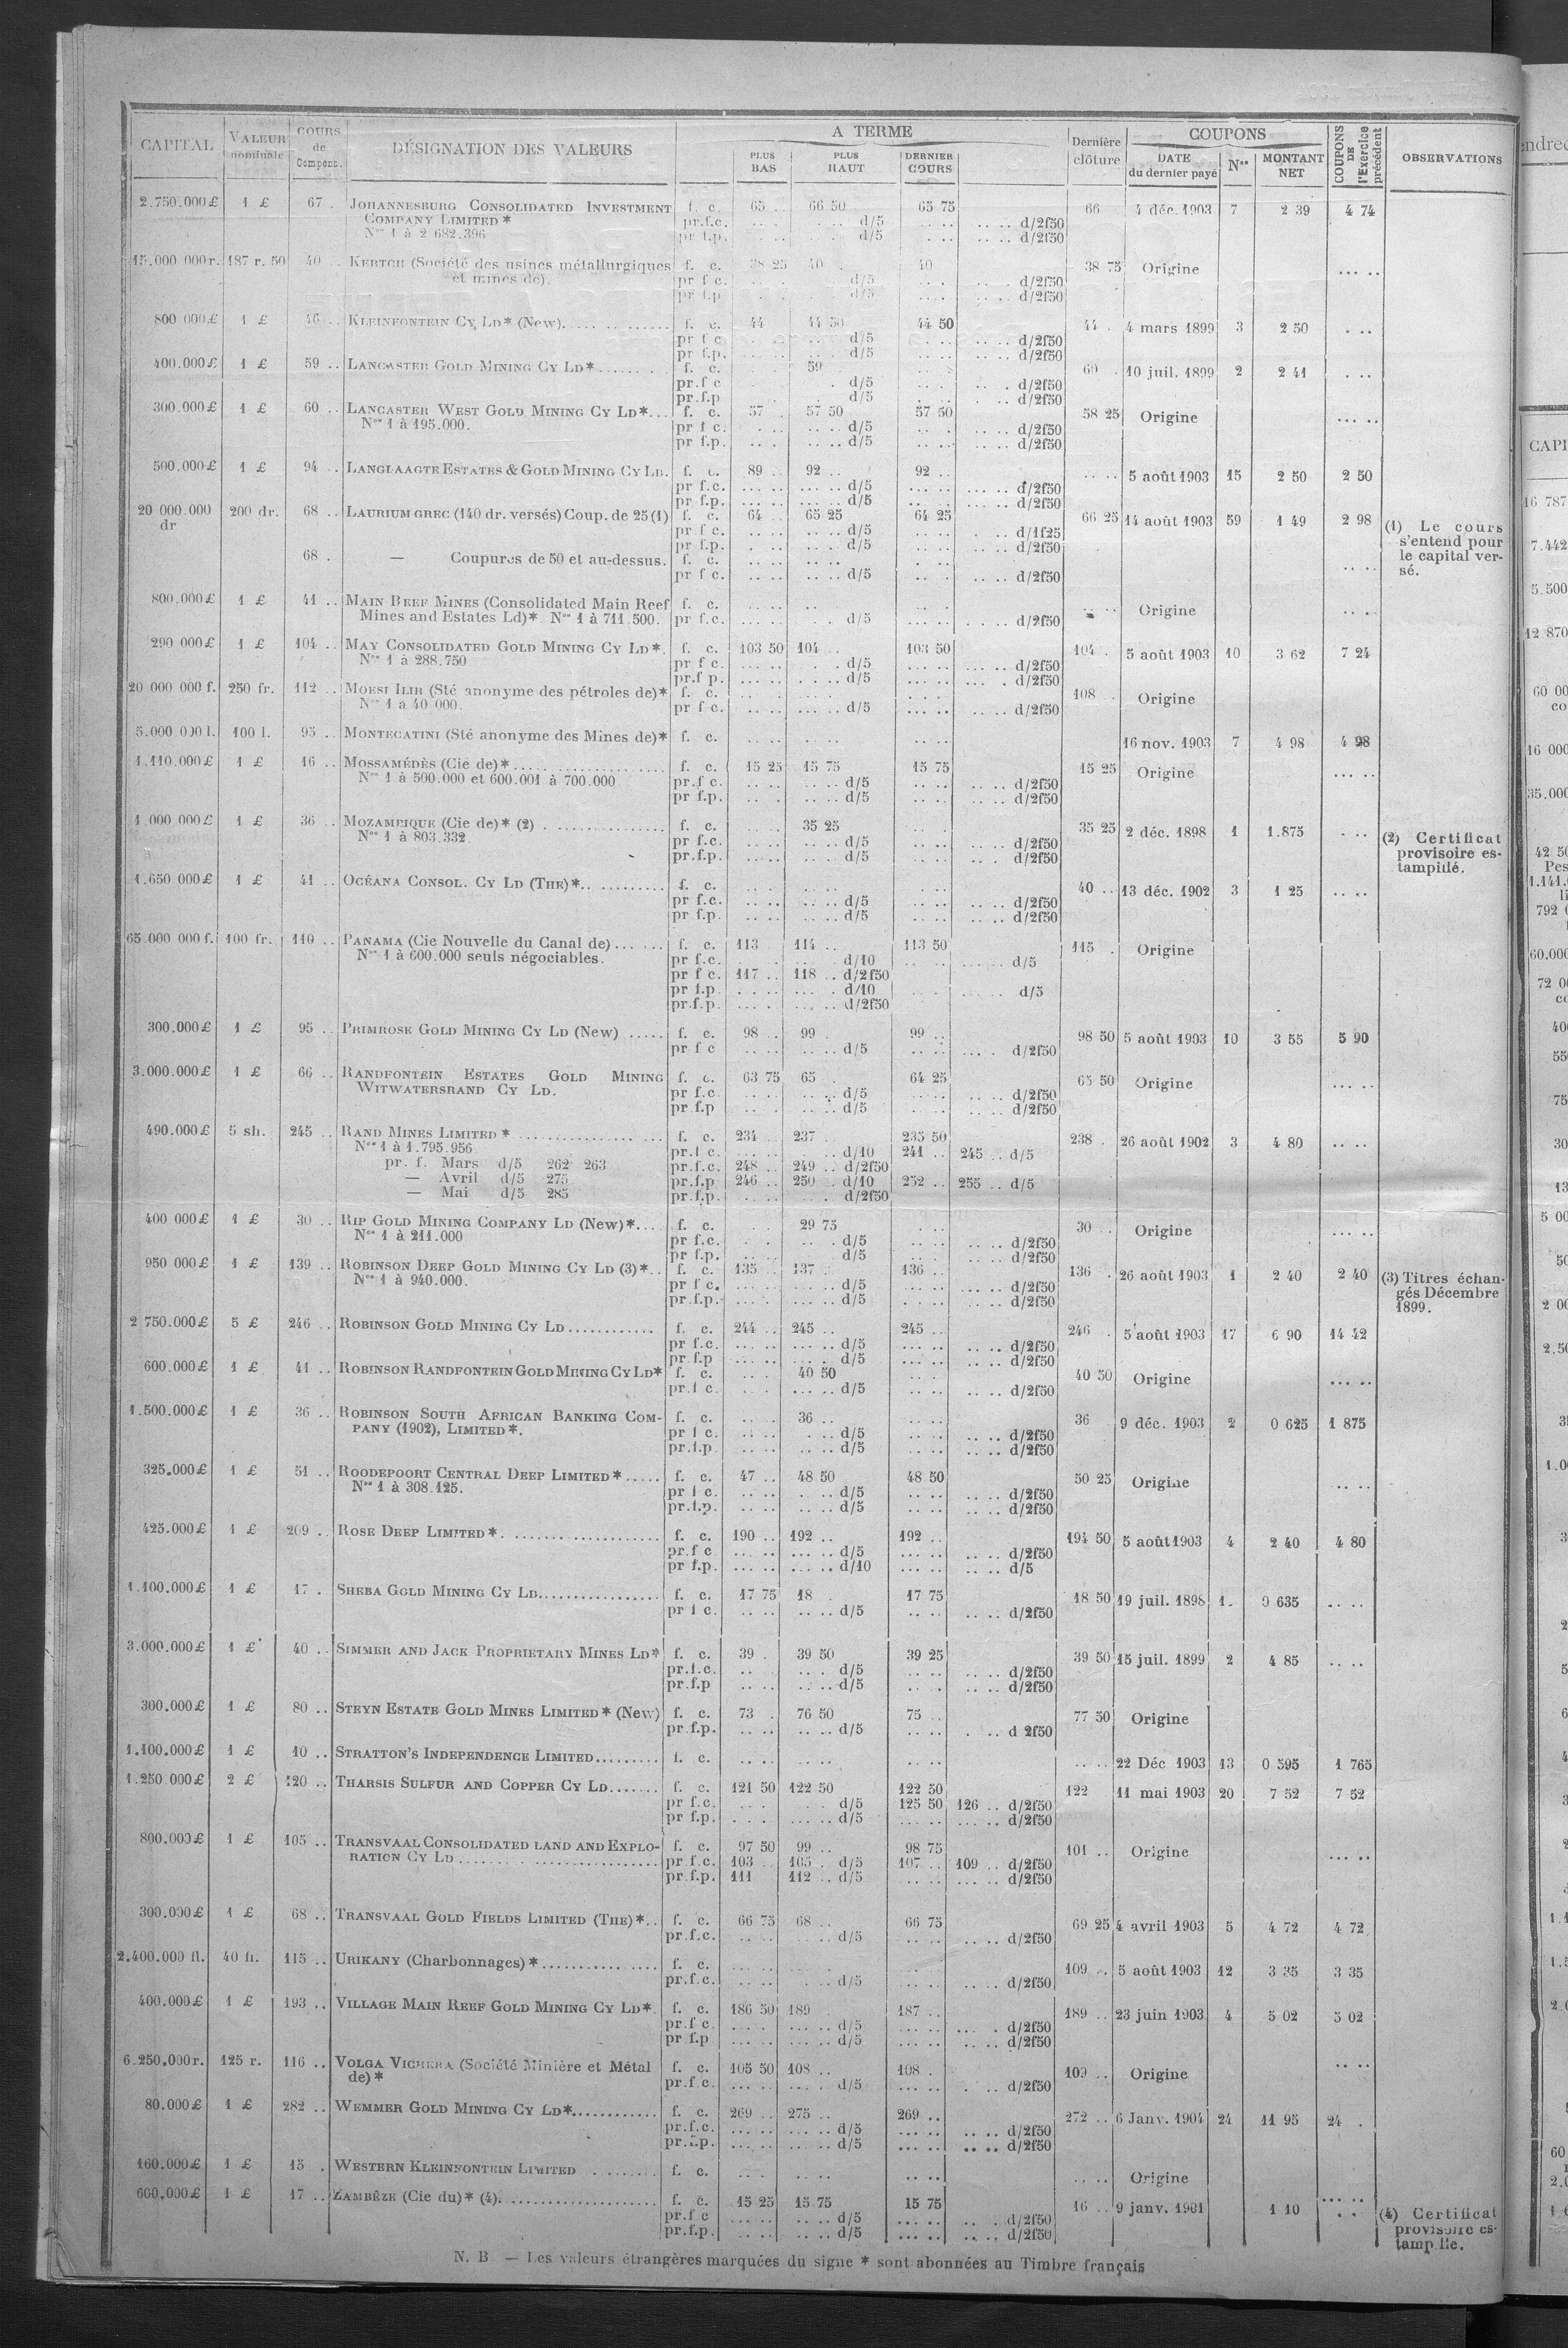 CAPITAL | VALEUR nominale | COURS de Compens. | DÉSIGNATION DES VALEURS | A TERME | Dernière clôture | COUPONS | COUPONS DE l'Exercice précédent | OBSERVATIONS
PLUS BAS | PLUS HAUT | DERNIER COURS | DATE du dernier payé | Nos | MONTANT NET
2.750.000 £ 1 £ 67 . JOHANNESBURG CONSOLIDATED INVESTMENT f. c. 65 .. 66 50 65 75 66 4 déc. 1903 7 2 39 4 74
COMPANY LIMITED * pr.f.c. d/5 d/2f50
Nos 1 à 2 682.396 pr f.p. d/5 d/2f50
15.000 000 r. 187 r. 50 40 .. KERTCH (Société des usines métallurgiques f. c. 38 25 40 . 40 38 75 Origine
et mines de). pr f c. d/5 d/2f50
pr f.p d/5 d/2f50
800 000 £ 1 £ 46 .. KLEINFONTEIN Cy LD* (New) f. c. 44 44 50 44 50 44 . 4 mars 1899 3 2 50
pr f c d/5 d/2f50
pr f.p. d/5 d/2f50
400.000 £ 1 £ 59 .. LANCASTER GOLD MINING CY LD* f. c. 59 60 . 10 juil. 1899 2 2 41
pr.f c d/5 d/2f50
pr.f.p d/5 d/2f50
300.000 £ 1 £ 60 .. LANCASTER WEST GOLD MINING CY LD* f. c. 57 57 50 57 50 58 25 Origine
Nos 1 à 195.000. pr f c. d/5 d/2f50
pr f.p. d/5 d/2f50
500.000 £ 1 £ 94 .. LANGLAAGTE ESTATES & GOLD MINING CY LD. f. c. 89 .. 92 .. 92 .. 5 août 1903 15 2 50 2 50
pr f.c. d/5 d/2f50
pr f.p. d/5 d/2f50
20 000.000 dr 200 dr. 68 .. LAURIUM GREC (140 dr. versés) Coup. de 25 (1) f. c. 64 .. 65 25 64 25 66 25 14 août 1903 59 1 49 2 98 (1) Le cours
pr f c. d/5 d/1f25 s'entend pour
pr f.p. d/5 d/2f50 le capital ver-
68 . — Coupures de 50 et au-dessus. f. c. sé.
pr f c. d/5 d/2f50
800.000 £ 1 £ 41 .. MAIN REEF MINES (Consolidated Main Reef f. c. Origine
Mines and Estates Ld)* Nos 1 à 711.500. pr f.c. d/5 d/2f50
290 000 £ 1 £ 104 .. MAY CONSOLIDATED GOLD MINING CY LD*. f. c. 103 50 104 .. 103 50 104 . 5 août 1903 10 3 62 7 24
Nos 1 à 288.750 pr f c. d/5 d/2f50
pr.f p. d/5 d/2f50
20 000 000 f. 250 fr. 112 .. MORSI ILIR (Sté anonyme des pétroles de)* f. c. 108 . Origine
Nos 1 à 40 000. pr f c. d/5 d/2f50
5.000 000 l. 100 l. 95 .. MONTECATINI (Sté anonyme des Mines de)* f. c. 16 nov. 1903 7 4 98 4 98
1.110.000 £ 1 £ 16 .. MOSSAMÉDÈS (Cie de)* f. c. 15 25 15 75 15 75 15 25 Origine
Nos 1 à 500.000 et 600.001 à 700.000 pr.f c. d/5 d/2f50
pr f.p. d/5 d/2f50
1.000 000 £ 1 £ 36 .. MOZAMBIQUE (Cie de)* (2) f. c. 35 25 35 25 2 déc. 1898 1 1.875 (2) Certificat
Nos 1 à 803.332 pr f.c. d/5 d/2f50 provisoire es-
pr.f.p. d/5 d/2f50 tampillé.
1.650 000 £ 1 £ 41 .. OCÉANA CONSOL. CY LD (THE)* f. c. 40 .. 13 déc. 1902 3 1 25
pr f.c. d/5 d/2f50
pr f.p. d/5 d/2f50
65.000 000 f. 100 fr. 110 .. PANAMA (Cie Nouvelle du Canal de) f. c. 113 114 .. 113 50 115 . Origine
Nos 1 à 600.000 seuls négociables. pr f.c. d/10 d/5
pr f c. 117 .. 118 .. d/2f50
pr f.p. d/10 d/5
pr.f.p. d/2f50
300.000 £ 1 £ 95 .. PRIMROSE GOLD MINING CY LD (New) f. c. 98 .. 99 . 99 .. 98 50 5 août 1903 10 3 55 5 90
pr f c d/5 d/2f50
3.000.000 £ 1 £ 66 .. RANDFONTEIN ESTATES GOLD MINING f. c. 63 75 65 . 64 25 65 50 Origine
WITWATERSRAND CY LD. pr f.c. d/5 d/2f50
pr.f.p d/5 d/2f50
490.000 £ 5 sh. 245 .. RAND MINES LIMITED * f. c. 234 237 235 50 238 . 26 août 1902 3 4 80
Nos 1 à 1.795.956 pr.f c. d/10 241 .. 245 .. d/5
pr. f. Mars d/5 262 263 pr.f.c. 248 .. 249 .. d/2f50
— Avril d/5 275 pr.f.p 246 .. 250 . d/10 252 .. 255 .. d/5
— Mai d/5 285 pr.f.p. d/2f50
400 000 £ 1 £ 30 .. RIP GOLD MINING COMPANY LD (New)* f. c. 29 75 30 .. Origine
Nos 1 à 211.000 pr f.c. d/5 d/2f50
pr f.p. d/5 d/2f50
950 000 £ 1 £ 139 .. ROBINSON DEEP GOLD MINING CY LD (3)* f. c. 135 .. 137 136 .. 136 . 26 août 1903 1 2 40 2 40 (3) Titres échan-
Nos 1 à 940.000. pr f c. d/5 d/2f50 gés Décembre
pr.f.p. d/5 d/2f50 1899.
2 750.000 £ 5 £ 246 .. ROBINSON GOLD MINING CY LD f. c. 244 .. 245 .. 245 .. 246 . 5 août 1903 17 6 90 14 42
pr f.c. d/5 d/2f50
pr.f.p d/5 d/2f50
600.000 £ 1 £ 41 .. ROBINSON RANDFONTEIN GOLD MINING CY LD* f. c. 40 50 40 50 Origine
pr.f c. d/5 d/2f50
1.500.000 £ 1 £ 36 .. ROBINSON SOUTH AFRICAN BANKING COM- f. c. 36 .. 36 9 déc. 1903 2 0 625 1 875
PANY (1902), LIMITED*. pr f c. d/5 d/2f50
pr.f.p. d/5 d/2f50
325.000 £ 1 £ 51 .. ROODEPOORT CENTRAL DEEP LIMITED* f. c. 47 .. 48 50 48 50 50 25 Origine
Nos 1 à 308.125. pr f c. d/5 d/2f50
pr.f.p. d/5 d/2f50
425.000 £ 1 £ 209 .. ROSE DEEP LIMITED* f. c. 190 .. 192 .. 192 .. 194 50 5 août 1903 4 2 40 4 80
pr.f c d/5 d/2f50
pr f.p. d/10 d/5
1.100.000 £ 1 £ 17 . SHEBA GOLD MINING CY LD f. c. 17 75 18 . 17 75 18 50 19 juil. 1898 1 0 635
pr f c. d/5 d/2f50
3.000.000 £ 1 £ 40 .. SIMMER AND JACK PROPRIETARY MINES LD* f. c. 39 . 39 50 39 25 39 50 15 juil. 1899 2 4 85
pr.f.c. d/5 d/2f50
pr.f.p d/5 d/2f50
300.000 £ 1 £ 80 .. STEYN ESTATE GOLD MINES LIMITED* (New) f. c. 73 . 76 50 75 .. 77 50 Origine
pr.f.p. d/5 d 2f50
1.100.000 £ 1 £ 10 .. STRATTON'S INDEPENDENCE LIMITED f. c. 22 Déc 1903 13 0 595 1 765
1.250 000 £ 2 £ 120 .. THARSIS SULFUR AND COPPER CY LD f. c. 121 50 122 50 122 50 122 11 mai 1903 20 7 52 7 52
pr f.c. d/5 125 50 126 .. d/2f50
pr f.p. d/5 d/2f50
800,000 £ 1 £ 105 .. TRANSVAAL CONSOLIDATED LAND AND EXPLO- f. c. 97 50 99 .. 98 75 101 .. Origine
RATION CY LD pr f.c. 103 105 . d/5 107 .. 109 .. d/2f50
pr.f.p. 111 112 .. d/5 d/2f50
300.000 £ 1 £ 68 .. TRANSVAAL GOLD FIELDS LIMITED (THE)* f. c. 66 75 68 .. 66 75 69 25 4 avril 1903 5 4 72 4 72
pr.f.c. d/5 d/2f50
2.400.000 fl. 40 fl. 115 .. URIKANY (Charbonnages)* f. c. 109 .. 5 août 1903 12 3 35 3 35
pr.f.c. d/5 d/2f50
400.000 £ 1 £ 193 .. VILLAGE MAIN REEF GOLD MINING CY LD*. f. c. 186 50 189 187 .. 189 .. 23 juin 1903 4 5 02 5 02
pr.f c. d/5 d/2f50
pr f.p d/5 d/2f50
6.250,000 r. 125 r. 116 .. VOLGA VICHERA (Société Minière et Métal f. c. 105 50 108 .. 108 . 109 .. Origine
de)* pr.f c. d/5 d/2f50
80.000 £ 1 £ 282 .. WEMMER GOLD MINING CY LD* f. c. 269 .. 275 .. 269 .. 272 .. 6 Janv. 1904 24 11 95 24 .
pr.f.c. d/5 d/2f50
pr.f.p. d/5 d/2f50
160.000 £ 1 £ 15 . WESTERN KLEINFONTEIN LIMITED f. c. Origine
600,000 £ 1 £ 17 .. ZAMBÈZE (Cie du)* (4) f. c. 15 25 15 75 15 75 16 .. 9 janv. 1901 1 10 (4) Certificat
pr.f c d/5 d/2f50 provisoire es-
pr.f.p. d/5 d/2f50 tampillé.
N. B — Les valeurs étrangères marquées du signe * sont abonnées au Timbre français